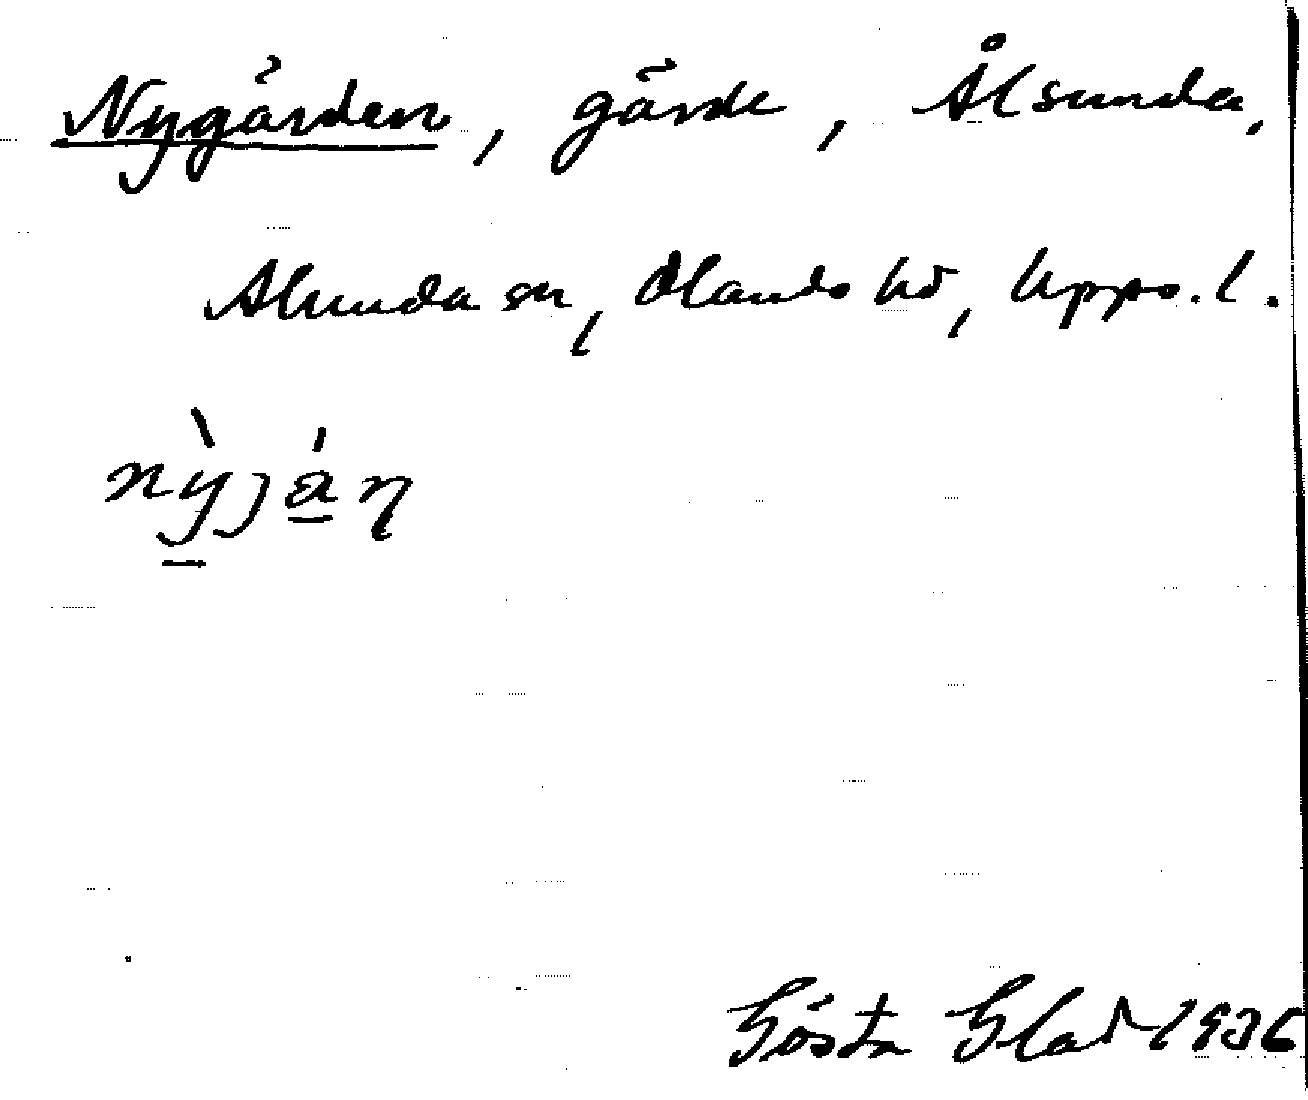 Nygärden, gärde, Ålsunda,
Alunda sn, Olands hd, Upps. l.
Gösta Glad 1936